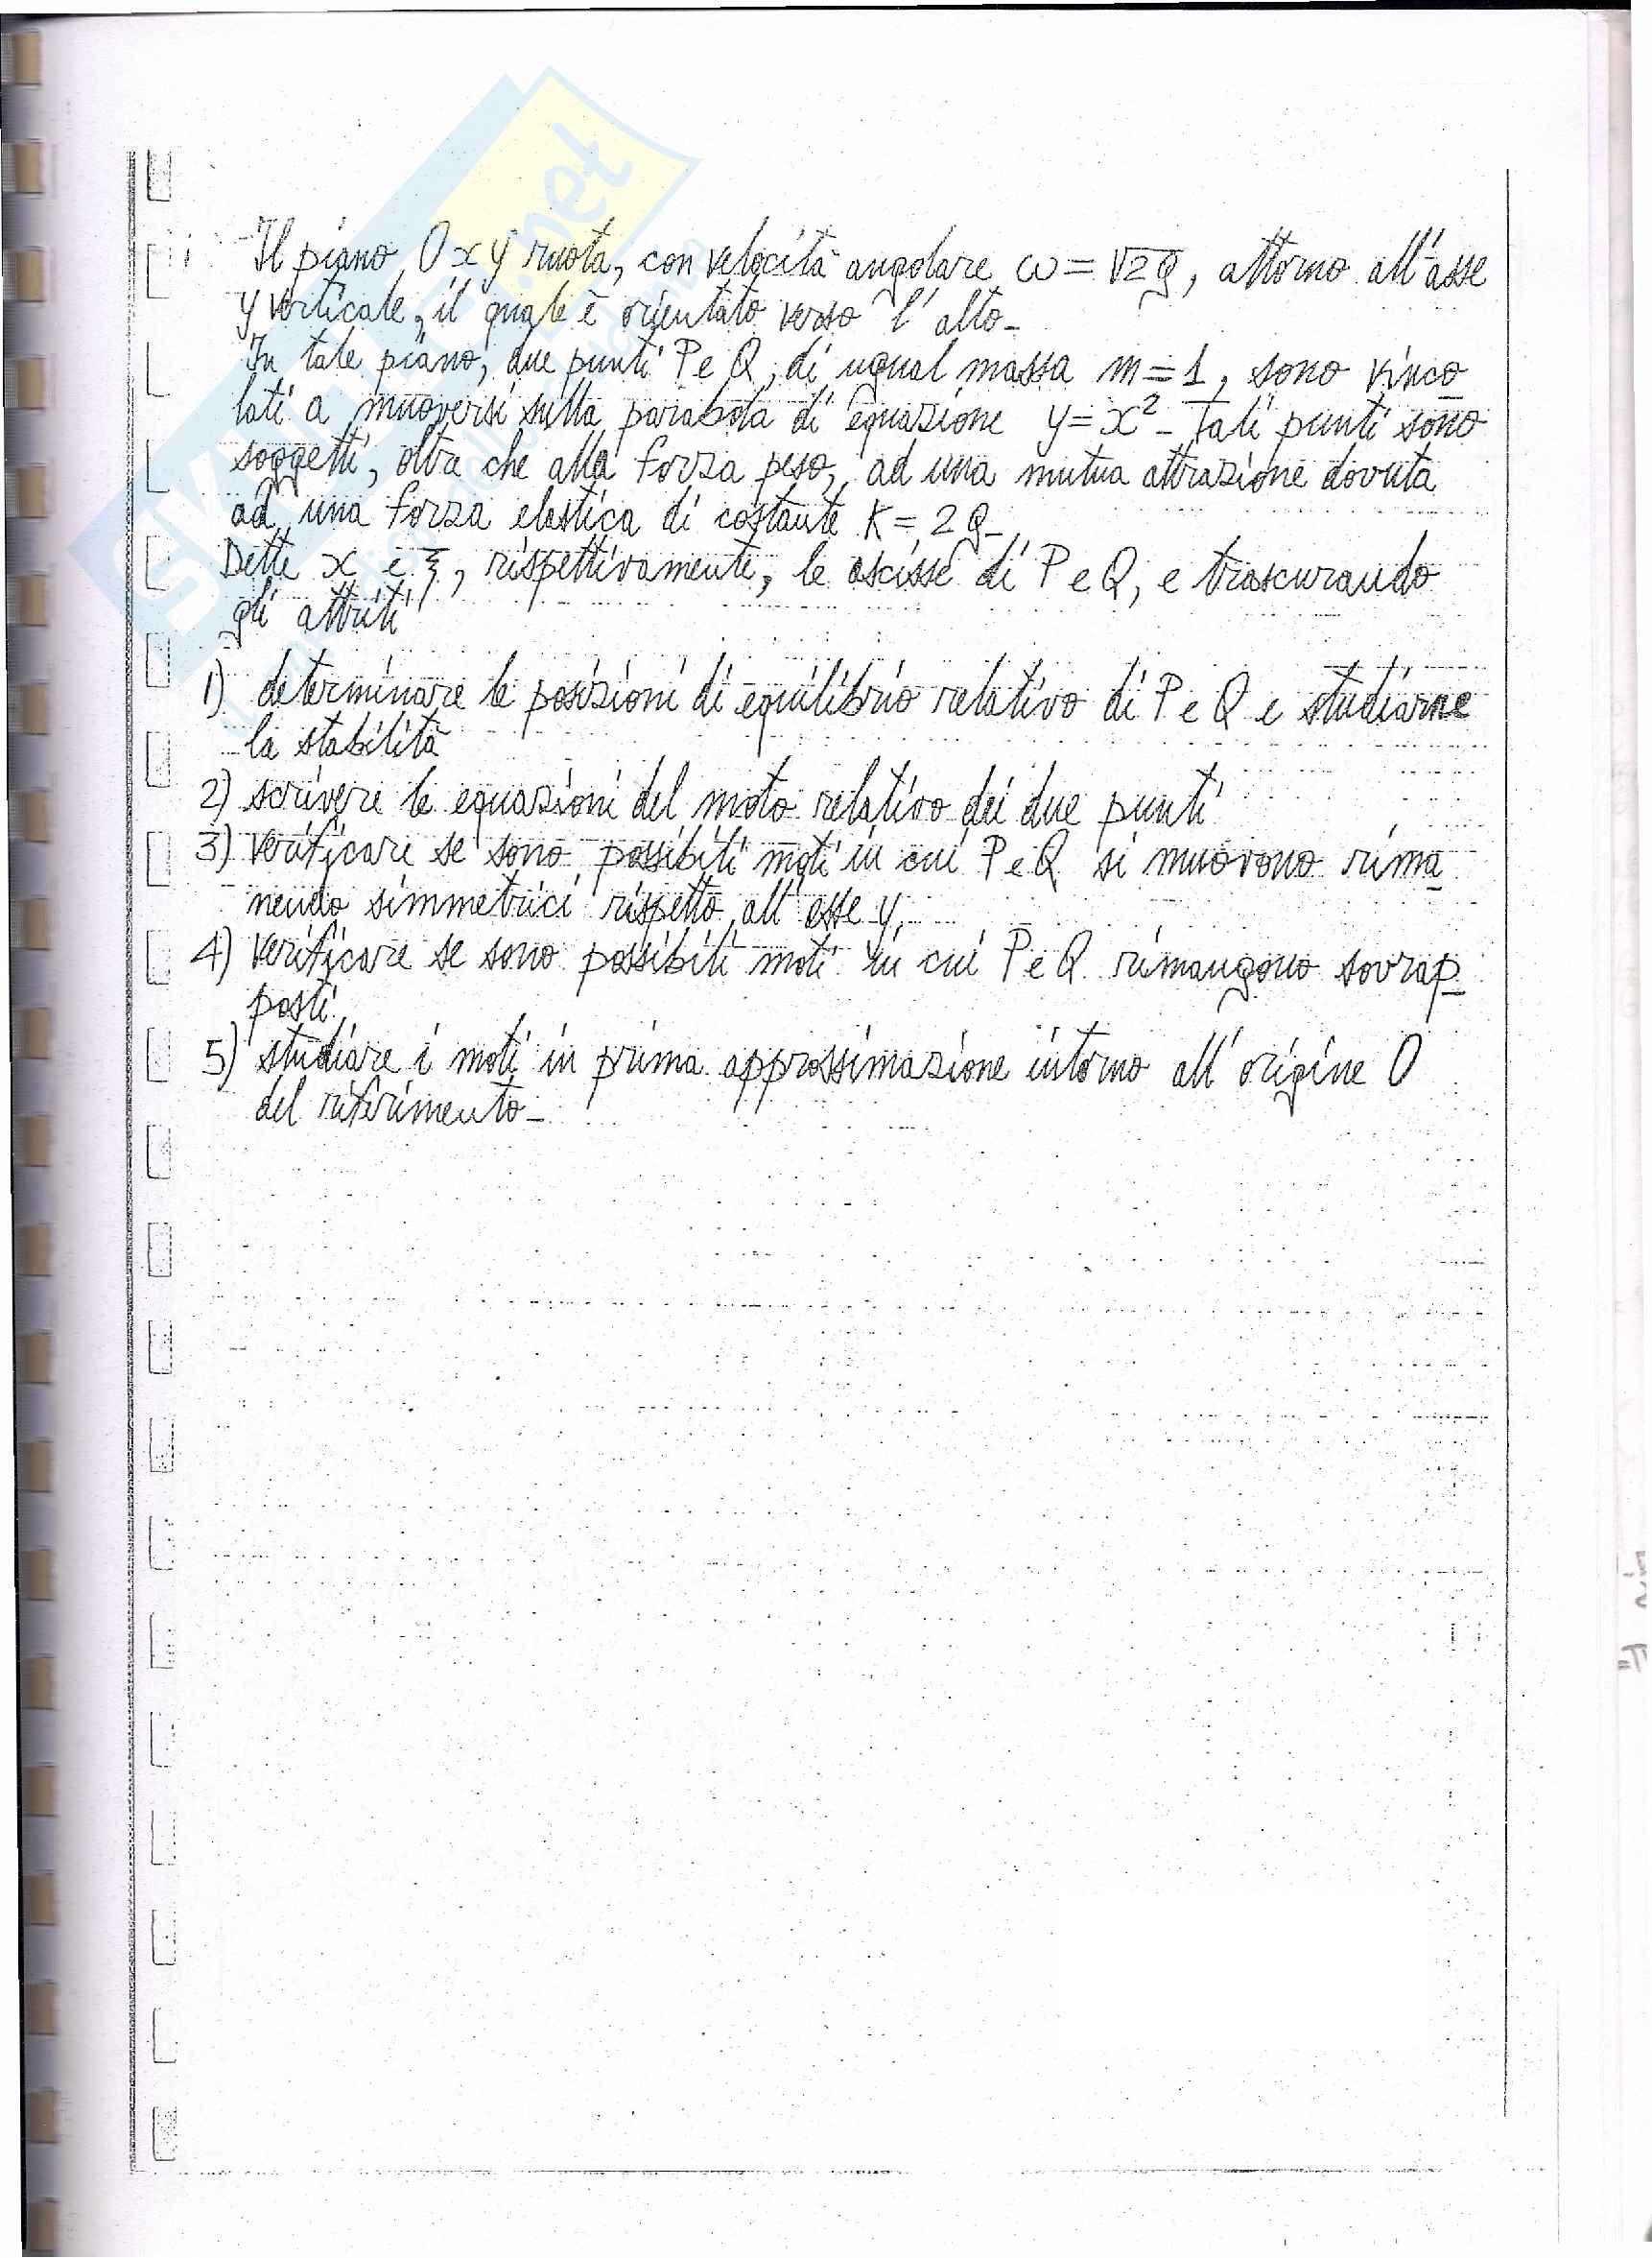 Il piano Oxy ruota, con velocità angolare ω = √2g, attorno all'asse
y verticale, il quale è orientato verso l'alto_
In tale piano, due punti P e Q, di ugual massa m=1, sono vinco
lati a muoversi sulla parabola di equazione y=x² _ Tali punti sono
soggetti, oltre che alla forza peso, ad una mutua attrazione dovuta
ad una forza elastica di costante K= 2g_
Dette x e ξ, rispettivamente, le ascisse di P e Q, e trascurando
gli attriti
1) determinare le posizioni di equilibrio relativo di P e Q e studiarne
la stabilità
2) scrivere le equazioni del moto relativo dei due punti
3) verificare se sono possibili moti in cui P e Q si muovono rima
nendo simmetrici rispetto all'asse y.
4) verificare se sono possibili moti in cui P e Q rimangono sovrap
posti.
5) studiare i moti in prima approssimazione intorno all'origine O
del riferimento_
.net